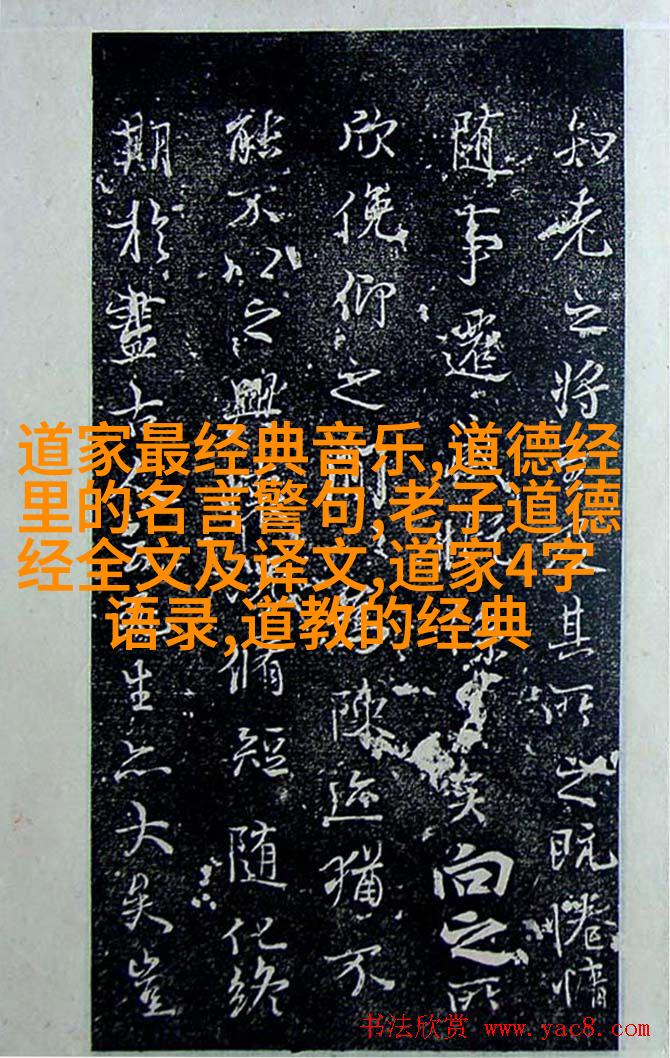 道家最经典音乐,道德经
里的名言警句,老子道德
经全文及译文,道家4字
语录,道教的经典
知老之將其所之既惓情
随事遷感矣向之所
欣俛仰之陳迹猶不
能不以之興脩短随化終
期於盡古人生亦大矣豈
书法欣赏 www.yac8.com